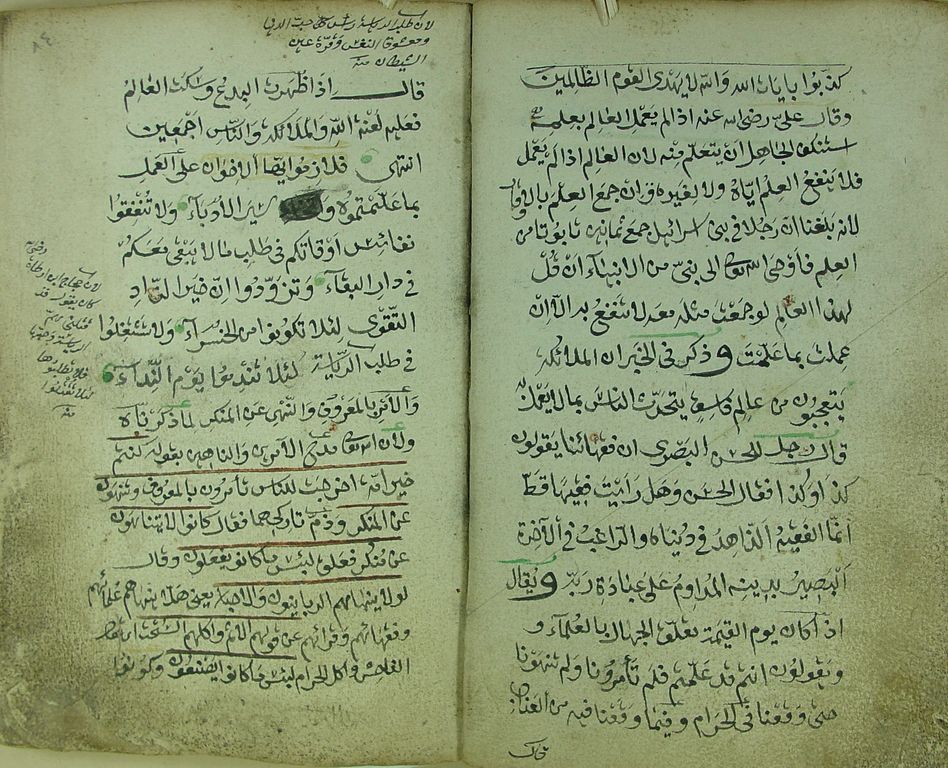 كذبوا بايات الله والله لا يهدى القوم الظالمين
وقال على رضى الله عنه اذا لم يعمل العالم بعلمه
استنكف الجاهل ان يتعلم منه لان العالم اذا لم يعمل
فلا ينفع العلم اياه ولا لغيره وان جمع العلم بالاوقار
لانه بلغنا ان رجلا فى بنى اسرائيل جمع ثمانين تابوتا من
العلم فاوحى الله تعالى الى نبى من الانبياء ان قل
لهذا العالم لو جمعت مثله معه لا تنتفع به الا ان
عملت بما علمت وذكر فى الخبر ان الملائكة
يتعجبون من عالم فاسق يتحدث الناس بما لا يعمل
قال رجل للحسن البصرى ان فقهائنا يقولون
كذا وكذا فقال الحسن وهل رايت فقيها قط
انما الفقيه الزاهد فى دنياه والراغب فى الآخرة
البصير بدينه المداوم على عبادة ربه ويقال
اذا كان يوم القيمة تعلق الجهال بالعلماء و
ويقولون انتم قد علمتم فلم تأمرونا ولم تنهونا
حتى وقعنا فى الحرام وفيما وقعنا فيه من العناء
قال
لان طلب الرياسة حب الدنيا
ومعشوق النفس وقرة عين
الشيطان منه
قال اذا ظهرت البدع وسكت العالم
فعليه لعنة الله والملائكة والناس اجمعين
انتهى فلازموا ايها الاخوان على العمل
بما علمتموه سير الادباء ولا تنفقوا
نفائس اوقاتكم فى طلب ما لا يبقى معكم
فى دار البقاء وتزودوا ان خير الزاد
التقوى لئلا تكونوا من الخسراء ولا تشتغلوا
فى طلب الرياسة لئلا تندموا يوم النداء
والامر بالمعروف والنهى عن المنكر لما ذكرناه
ولان الله تعالى مدح الآمرين والناهين بقوله كنتم
خير امة اخرجت للناس تأمرون بالمعروف وتنهون
عن المنكر وذم تاركيهما فقال كانوا لا يتناهون
عن منكر فعلوه لبئس ما كانوا يفعلون وقال
لولا ينهاهم الربانيون والاحبار يعنى هلا ينهاهم علمائهم
وفقهائهم وقرائهم عن قولهم الاثم واكلهم السحت اى
الفاحش واكل الحرام لبئس ما كانوا يصنعون وكونوا
كان يقول قد
الرياسة
فلا تطلبوها
منه